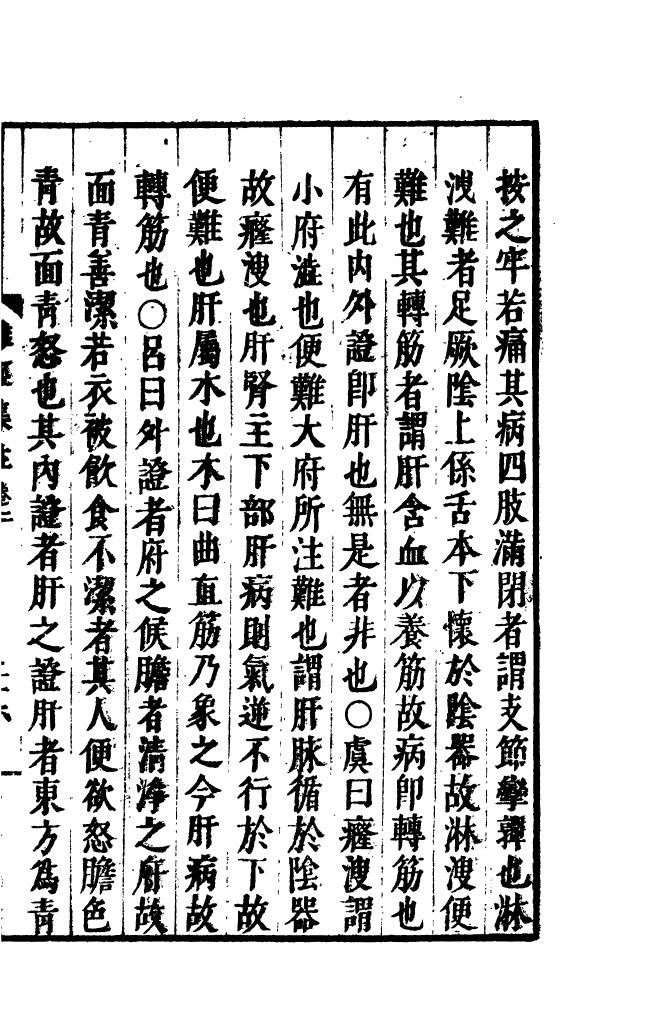 按之牢若痛其病四肢滿閉者謂支節攣躄也淋
洩難者足厥陰上係舌本下懷於陰器故淋溲便
難也其轉筋者謂肝含血以養筋故病卽轉筋也
有此內外證卽肝也無是者非也〇虞曰癃溲謂
小府澁也便難大府所注難也謂肝脉循於陰器
故癃溲也肝腎主下部肝病則氣逆不行於下故
便難也肝屬木也木曰曲直筋乃象之今肝病故
轉筋也〇呂曰外證者府之候膽者清淨之府故
面青善潔若衣被飲食不潔者其人便欲怒膽色
青故面青怒也其內證者肝之證肝者東方爲青
難經集註卷二